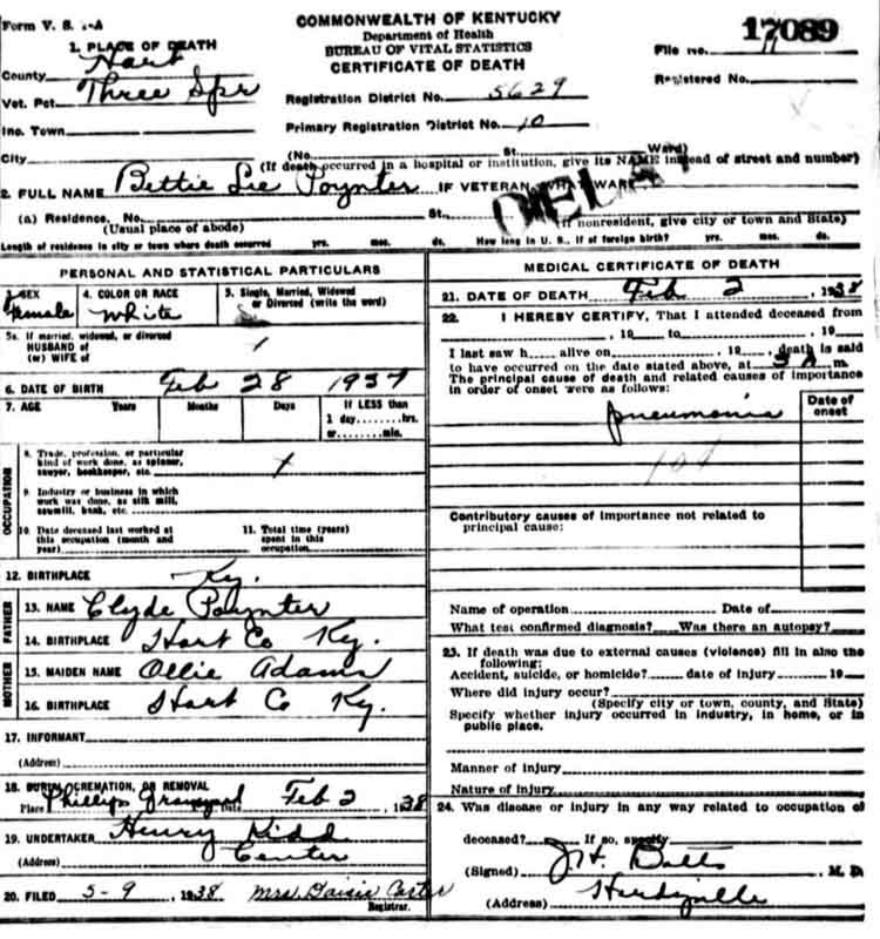 Form V. S. 1-A
COMMONWEALTH OF KENTUCKY
Department of Health
BUREAU OF VITAL STATISTICS
CERTIFICATE OF DEATH
17089
File no. 11
Registered No.
1. PLACE OF DEATH
County Hart
Vot. Pct. Three Spr
Inc. Town
City
Registration District No. 5629
Primary Registration District No. 10
(No. St. Ward)
(If death occurred in a hospital or institution, give its NAME instead of street and number)
2. FULL NAME Bettie Lee Poynter IF VETERAN, WHAT WAR
DELAY
(a) Residence. No. St.
(Usual place of abode) (If nonresident, give city or town and State)
Length of residence in city or town where death occurred yrs. mos. ds. How long in U. S., if of foreign birth? yrs. mos. ds.
PERSONAL AND STATISTICAL PARTICULARS
3. SEX 4. COLOR OR RACE 5. Single, Married, Widowed
or Divorced (write the word)
Female White
5a. If married, widowed, or divorced
HUSBAND of
(or) WIFE of
6. DATE OF BIRTH Feb 28 1937
7. AGE Years Months Days If LESS than
1 day........hrs.
or........min.
OCCUPATION
8. Trade, profession, or particular
kind of work done, as spinner,
sawyer, bookkeeper, etc.
9. Industry or business in which
work was done, as silk mill,
sawmill, bank, etc.
10. Date deceased last worked at
this occupation (month and
year)
11. Total time (years)
spent in this
occupation
12. BIRTHPLACE Ky.
FATHER
13. NAME Clyde Poynter
14. BIRTHPLACE Hart Co Ky.
MOTHER
15. MAIDEN NAME Ollie Adams
16. BIRTHPLACE Hart Co Ky.
17. INFORMANT
(Address)
18. BURIAL, CREMATION, OR REMOVAL
Place Phillips Graveyard Date Feb 2, 1938
19. UNDERTAKER Henry Kidd
(Address) Center
20. FILED 5-9, 1938 Mrs. Daisie Carter
Registrar.
MEDICAL CERTIFICATE OF DEATH
21. DATE OF DEATH Feb 2, 1938
22. I HEREBY CERTIFY, That I attended deceased from
, 19 to , 19
I last saw h alive on , 19 , death is said
to have occurred on the date stated above, at 3 A m.
The principal cause of death and related causes of importance
in order of onset were as follows:
Date of
onset
pneumonia
Contributory causes of importance not related to
principal cause:
Name of operation Date of
What test confirmed diagnosis? Was there an autopsy?
23. If death was due to external causes (violence) fill in also the
following:
Accident, suicide, or homicide? date of injury 19
Where did injury occur?
(Specify city or town, county, and State)
Specify whether injury occurred in industry, in home, or in
public place.
Manner of injury
Nature of injury
24. Was disease or injury in any way related to occupation of
deceased? If so, specify
(Signed) J. H. Batts, M. D
(Address) Hardyville